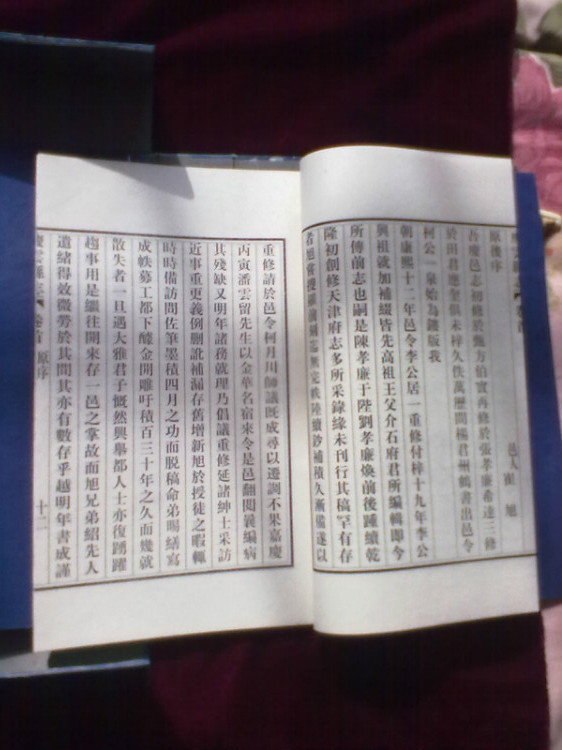 原後序
邑人 崔 旭
吾慶邑志初修於甄方伯實再修於張孝廉希逹三修
於田君應奎俱未梓久佚萬歷間楊君州鶴書出邑令
柯公一泉始為鏤版我
朝康熙十一年邑令李公居一重修付梓十九年李公
興祖就加補綴皆先高祖王父介石府君所編輯即今
所傳前志也嗣是陳孝廉于陛劉孝廉煥前後踵續乾
隆初創修天津府志多所采錄緣未刊行其稿罕有存
者旭嘗搜羅前刻志無完帙續鈔補積久漸備遂以
重修請於邑令柯月川師議旣成尋以遷調不果嘉慶
丙寅潘雲留先生以金華名宿來令是邑翻閱曩編病
其殘缺又明年諸務就理乃倡議重修延諸紳士采訪
近事重更義例刪訛補漏存舊增新旭於授徒之暇輒
時時備訪問佐筆墨積四月之功而脫稿命弟暘繕寫
成帙募工都下醵金開雕吁積百三十年之久而幾就
散失者一旦遇大雅君子慨然興舉都人士亦復踴躍
趨事用是繼往開來存一邑之掌故而旭兄弟紹先人
遺緒得效微勞於其間其亦有數存乎越明年書成謹
慶雲縣志 卷首 原序 十二